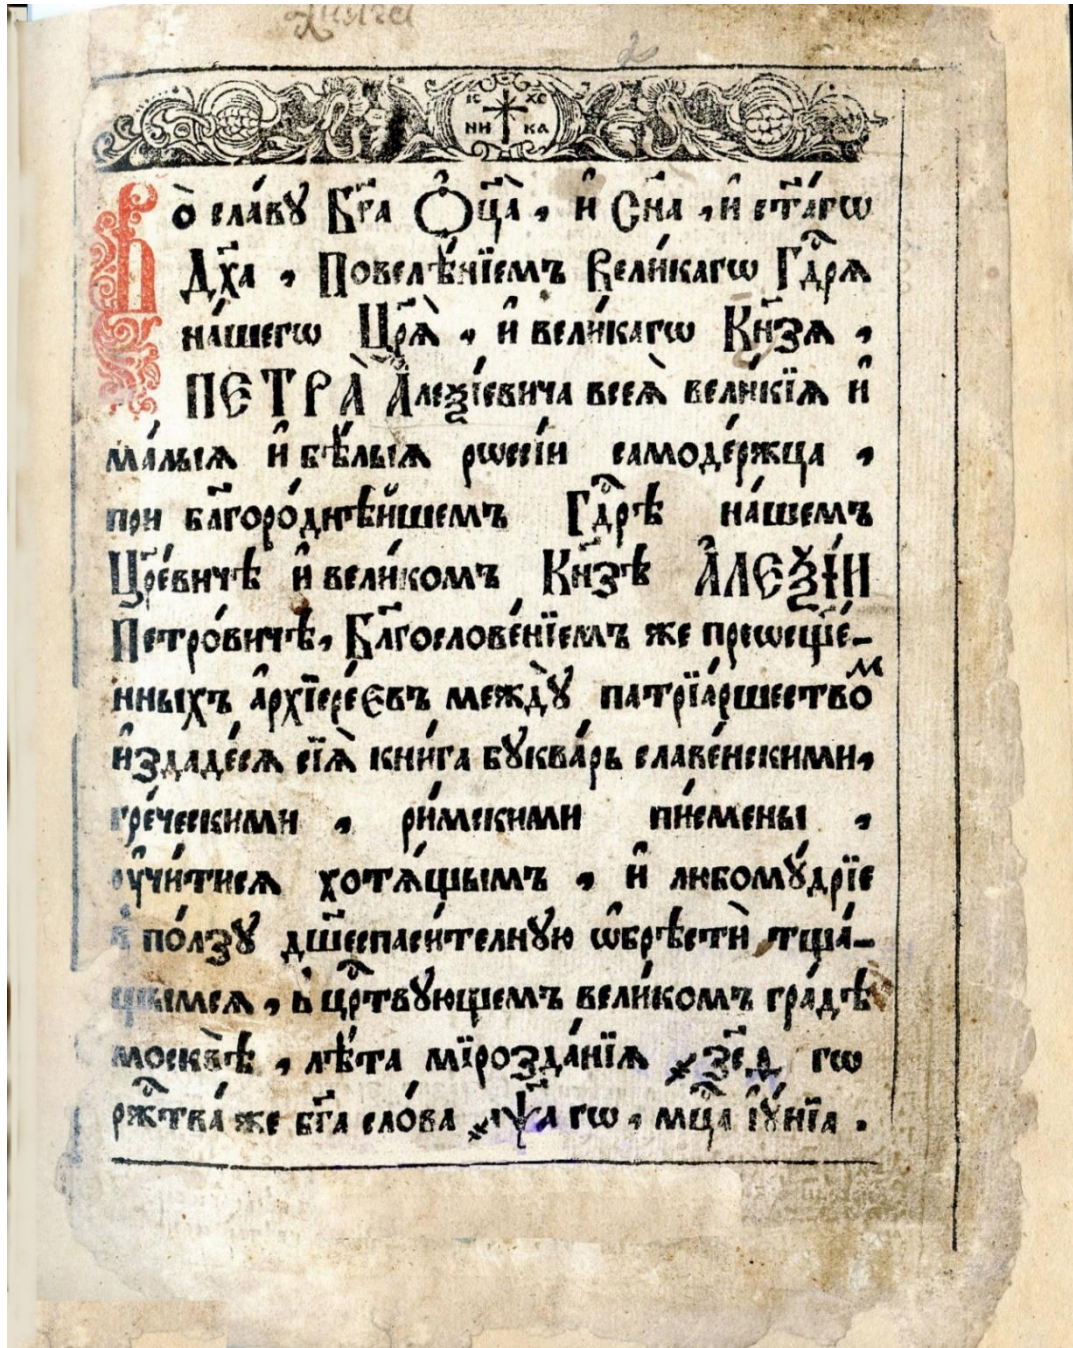 І҃С Х҃С
НИ КА
Во̀ сла́вꙋ Бг҃а Ѻ҆ц҃а̀, и҆ Сн҃а, и҆ ст҃а́гѡ
Дх҃а, Повелѣ́нїемъ Вели́кагѡ Гдⷭ҇рѧ
на́шегѡ Цр҃ѧ̀, и҆ вели́кагѡ Кн҃зѧ,
ПЕТРА̀ А҆леѯі́евича всеѧ̀ вели́кїѧ и҆
ма́лыѧ и҆ бѣ́лыѧ рѡссі́и самоде́ржца,
при бл҃горо́днѣйшемъ Гдⷭ҇рѣ на́шемъ
Цр҃е́вичѣ и҆ вели́комъ Кн҃зѣ А҆ЛЕѮІ́И
Петро́вичѣ, Бл҃гослове́нїемъ же прѡсщ҃е́-
нныхъ а҆рхїере́євъ междꙋ̀ патрїа́ршествоⷨ
и҆здаде́сѧ сїѧ̀ кни́га бꙋква́рь славе́нскими,
гре́ческими, ри́мскими пи́смены,
ᲂу҆чи́тисѧ хотѧ́щымъ, и҆ любомꙋ́дрїе
в̾ по́лзꙋ дш҃еспаси́телнꙋю ѡ҆брѣстѝ тща́-
щымсѧ, в̾ црⷭ҇твꙋющемъ вели́комъ гра́дѣ
москвѣ̀, лѣ́та мїрозда́нїѧ ҂зс҃ѳ гѡ
ржⷭ҇тва́ же бг҃а сло́ва ҂аѱ҃а гѡ, мцⷭ҇а і҆ꙋ́нїа.